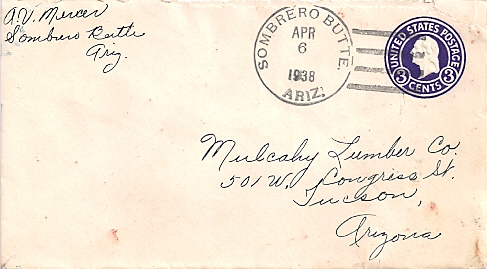 A.V. Mercer
Sombrero Butte
Ariz.
SOMBRERO BUTTE.
APR
6
1938
ARIZ.
UNITED STATES POSTAGE
3 3
CENTS
Mulcahy Lumber Co
501 W. Congress St.
Tucson,
Arizona